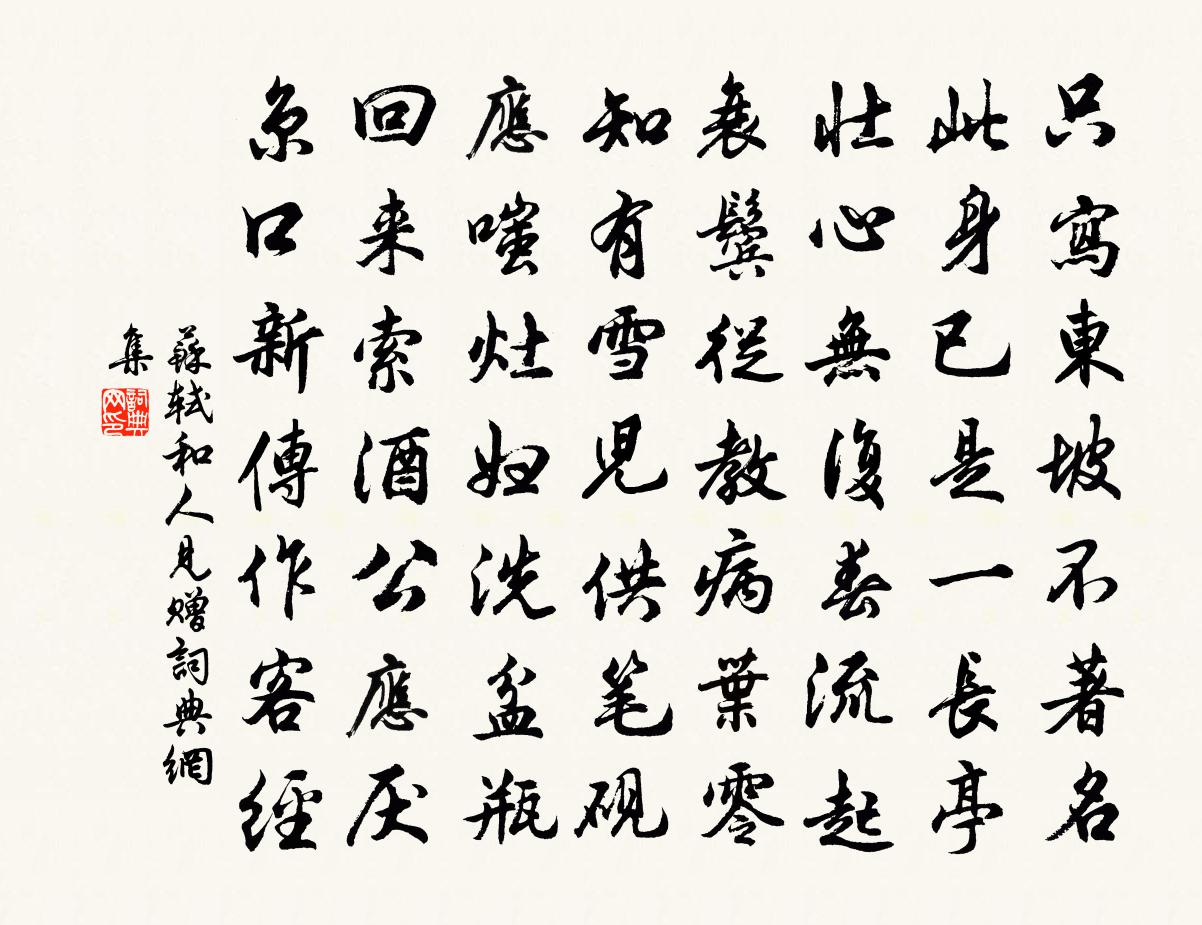 只寫東坡不著名
此身已是一長亭
壯心無復春流起
衰鬢從教病葉零
知有雪児供笔硯
應嗤灶妇洗盆瓶
回来索酒公應厌
京口新傳作客經
蘇軾和人見贈詞典網
集
詞典網印